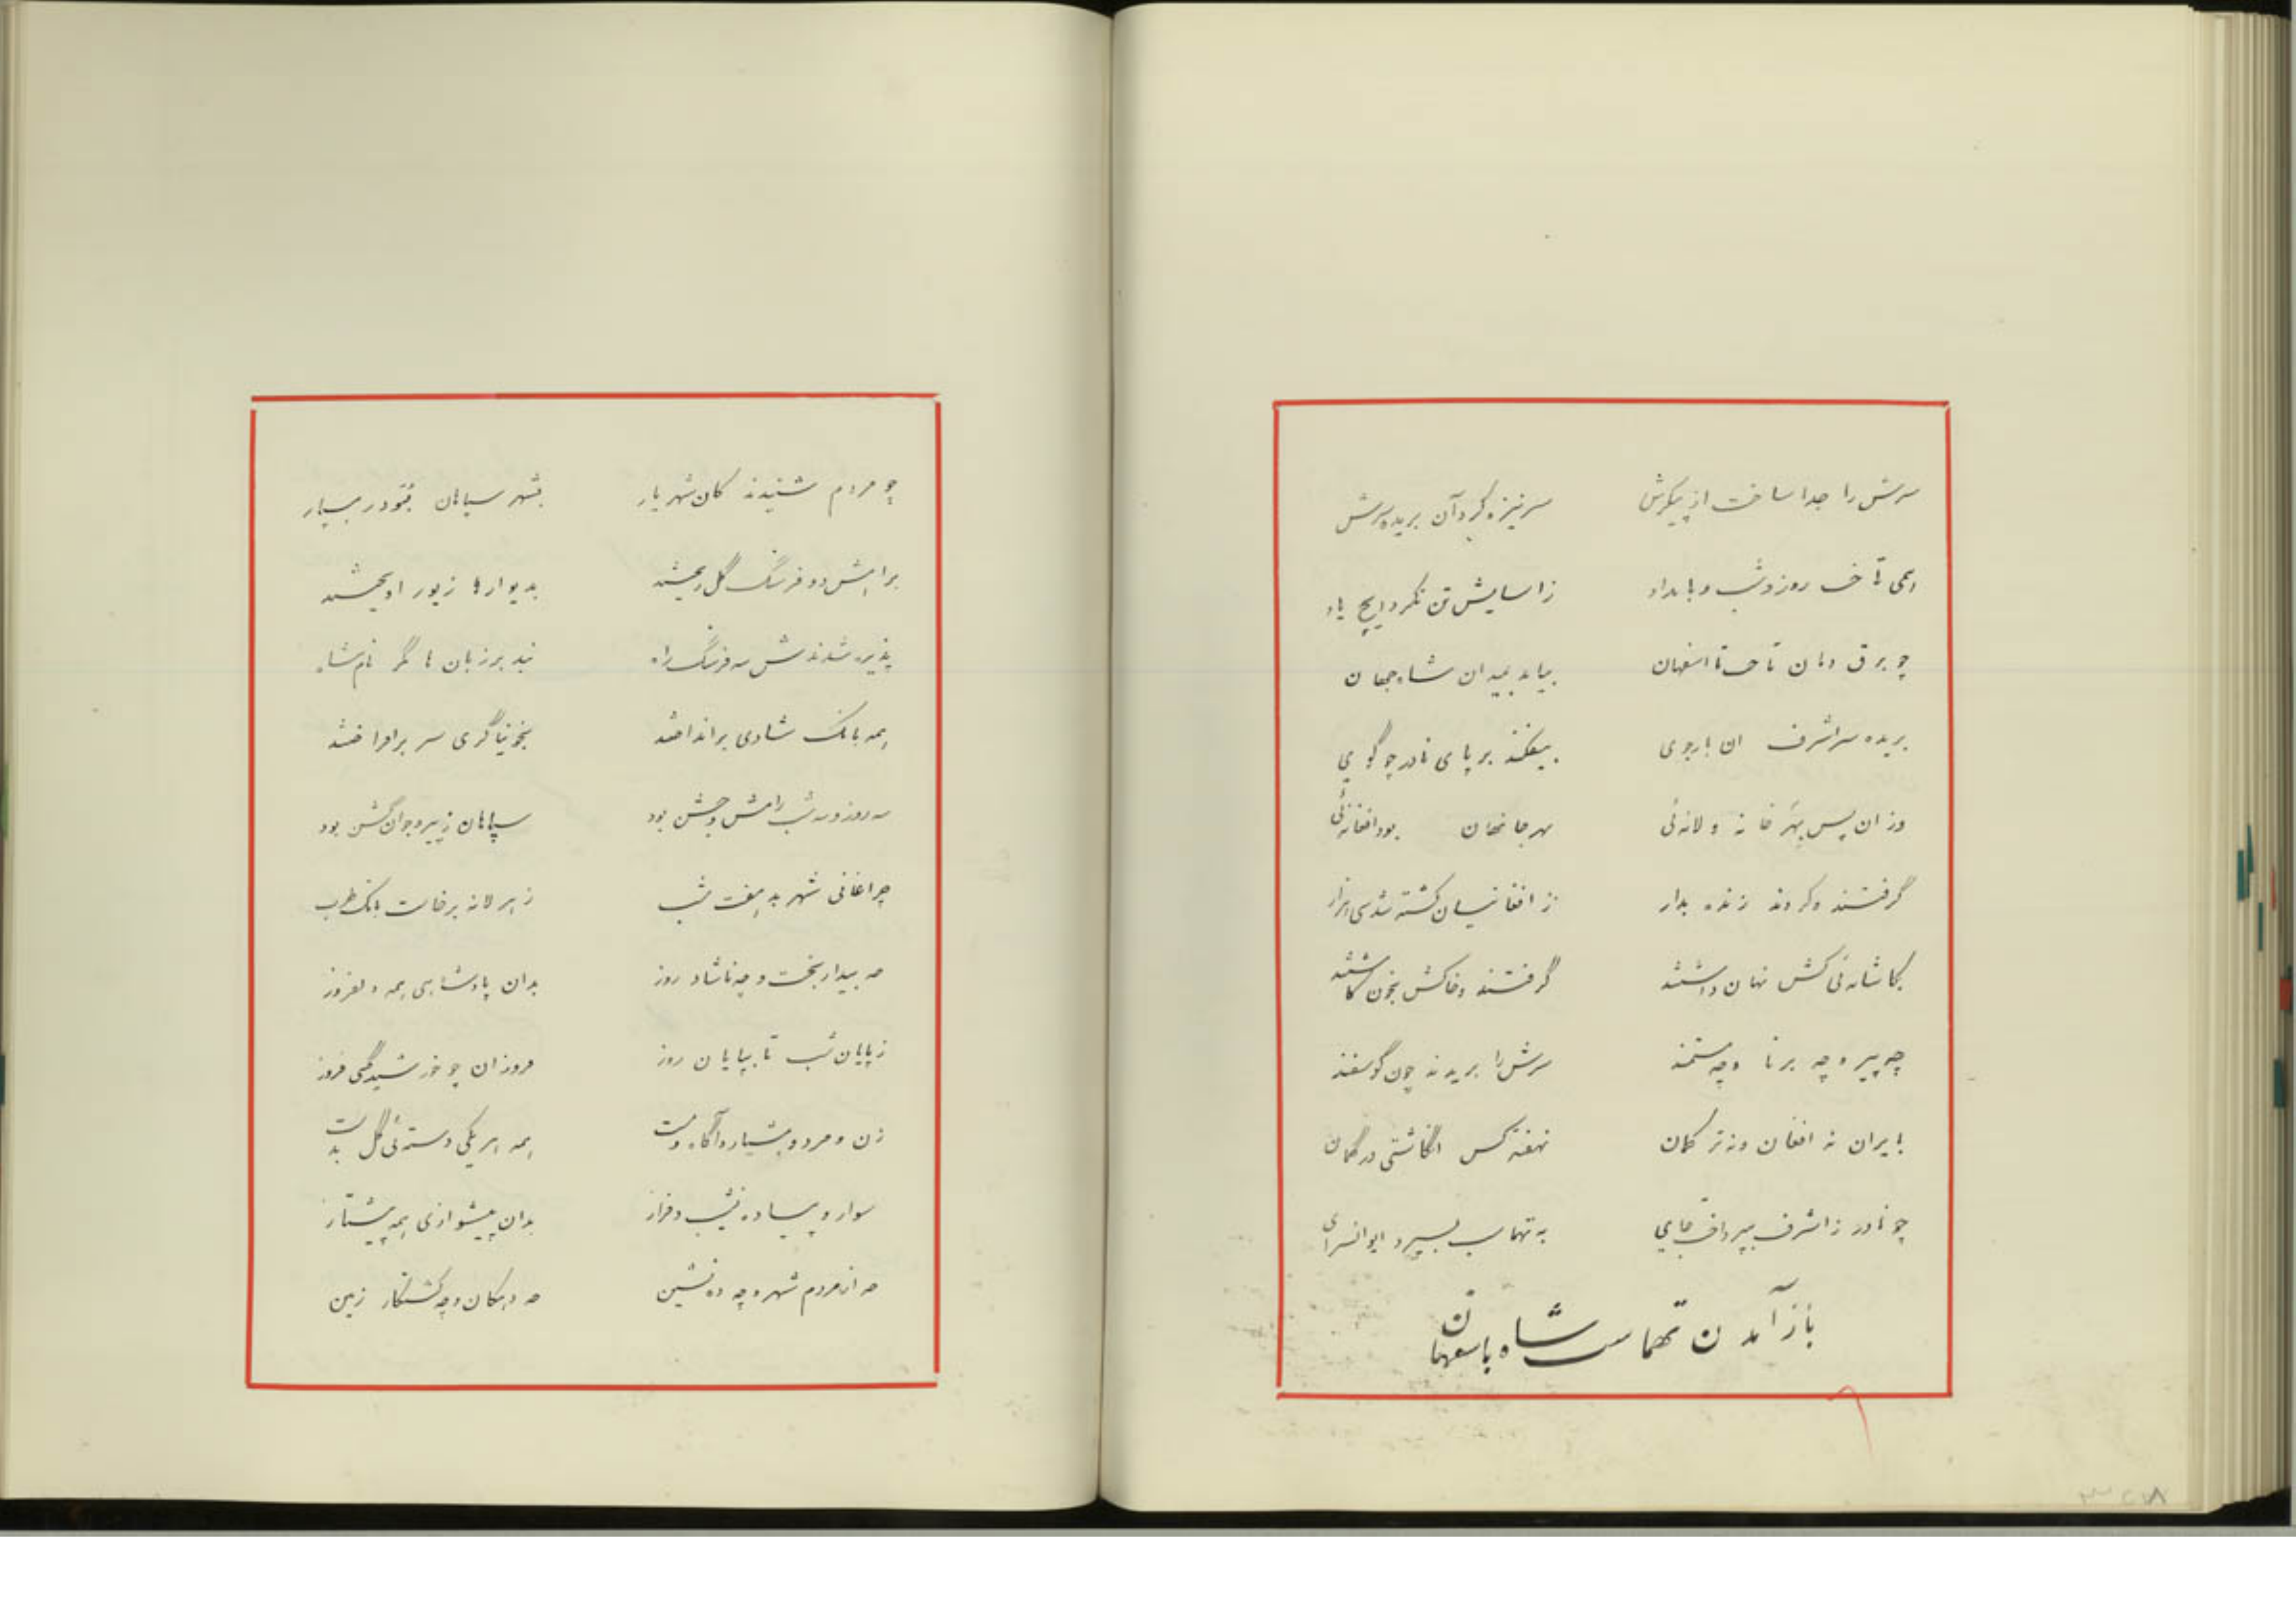 سرش را جدا ساخت از پیکرش    سر نیزه کرد آن بریده سرش
همی تاخت روز و شب و بامداد    ز اسایش تن نکرد ایچ یاد
چو برق دمان تاخت تا اصفهان    بیامد بمیدان شاه جهان
بریده سر اشرف ان بارجوی    بیفکند بر پای نادر چو گوی
وز ان پس بهر خانه و لانه‌ئی    بهر جا نهان بود افغانه‌ئی
گرفتند و کردند زنده بدار    ز افغانیان کشته شد سی هزار
بکاشانه‌ئی کش نهان داشتند    گرفتند و خاکش بخون کاشتند
چه پیر و چه برنا و چه مستمند    سرش را بریدند چون گوسفند
بایران نه افغان و نه ترکمان    نهفته کس انگاشتی در گمان
چو نادر ز اشرف بپرداخت جای    به تهماسب بسپرد ایوانسرای
باز آمدن تهماسب شاه باصفهان
۳۲۱۸
چو مردم شنیدند کان شهریار    بشهر سپاهان بود رهسپار
براهش دو فرسنگ گل ریختند    بدیوارها زیور اویختند
پذیره شدندش سه فرسنگ راه    نبد بر زبان‌ها مگر نام شاه
همه بانگ شادی برانداختند    بخونیاگری سر برافراختند
سه روز و سه شب رامش و جشن بود    سپاهان ز پیر و جوان گشن بود
چراغانی شهر بد هفت شب    ز هر لانه برخاست بانگ طرب
چه بیدار بخت و چه ناشاد روز    بدان پادشاهی همه دلفروز
ز پایان شب تا بپایان روز    فروزان چو خورشید گیتی فروز
زن و مرد و هشیار و آگاه و مست    همه هر یکی دسته‌ئی گل بدست
سوار و پیاده نشیب و فراز    بدان پیشوازی همه پیشتاز
چه از مردم شهر و چه ده نشین    چه دهکان و چه کشتکار زمین